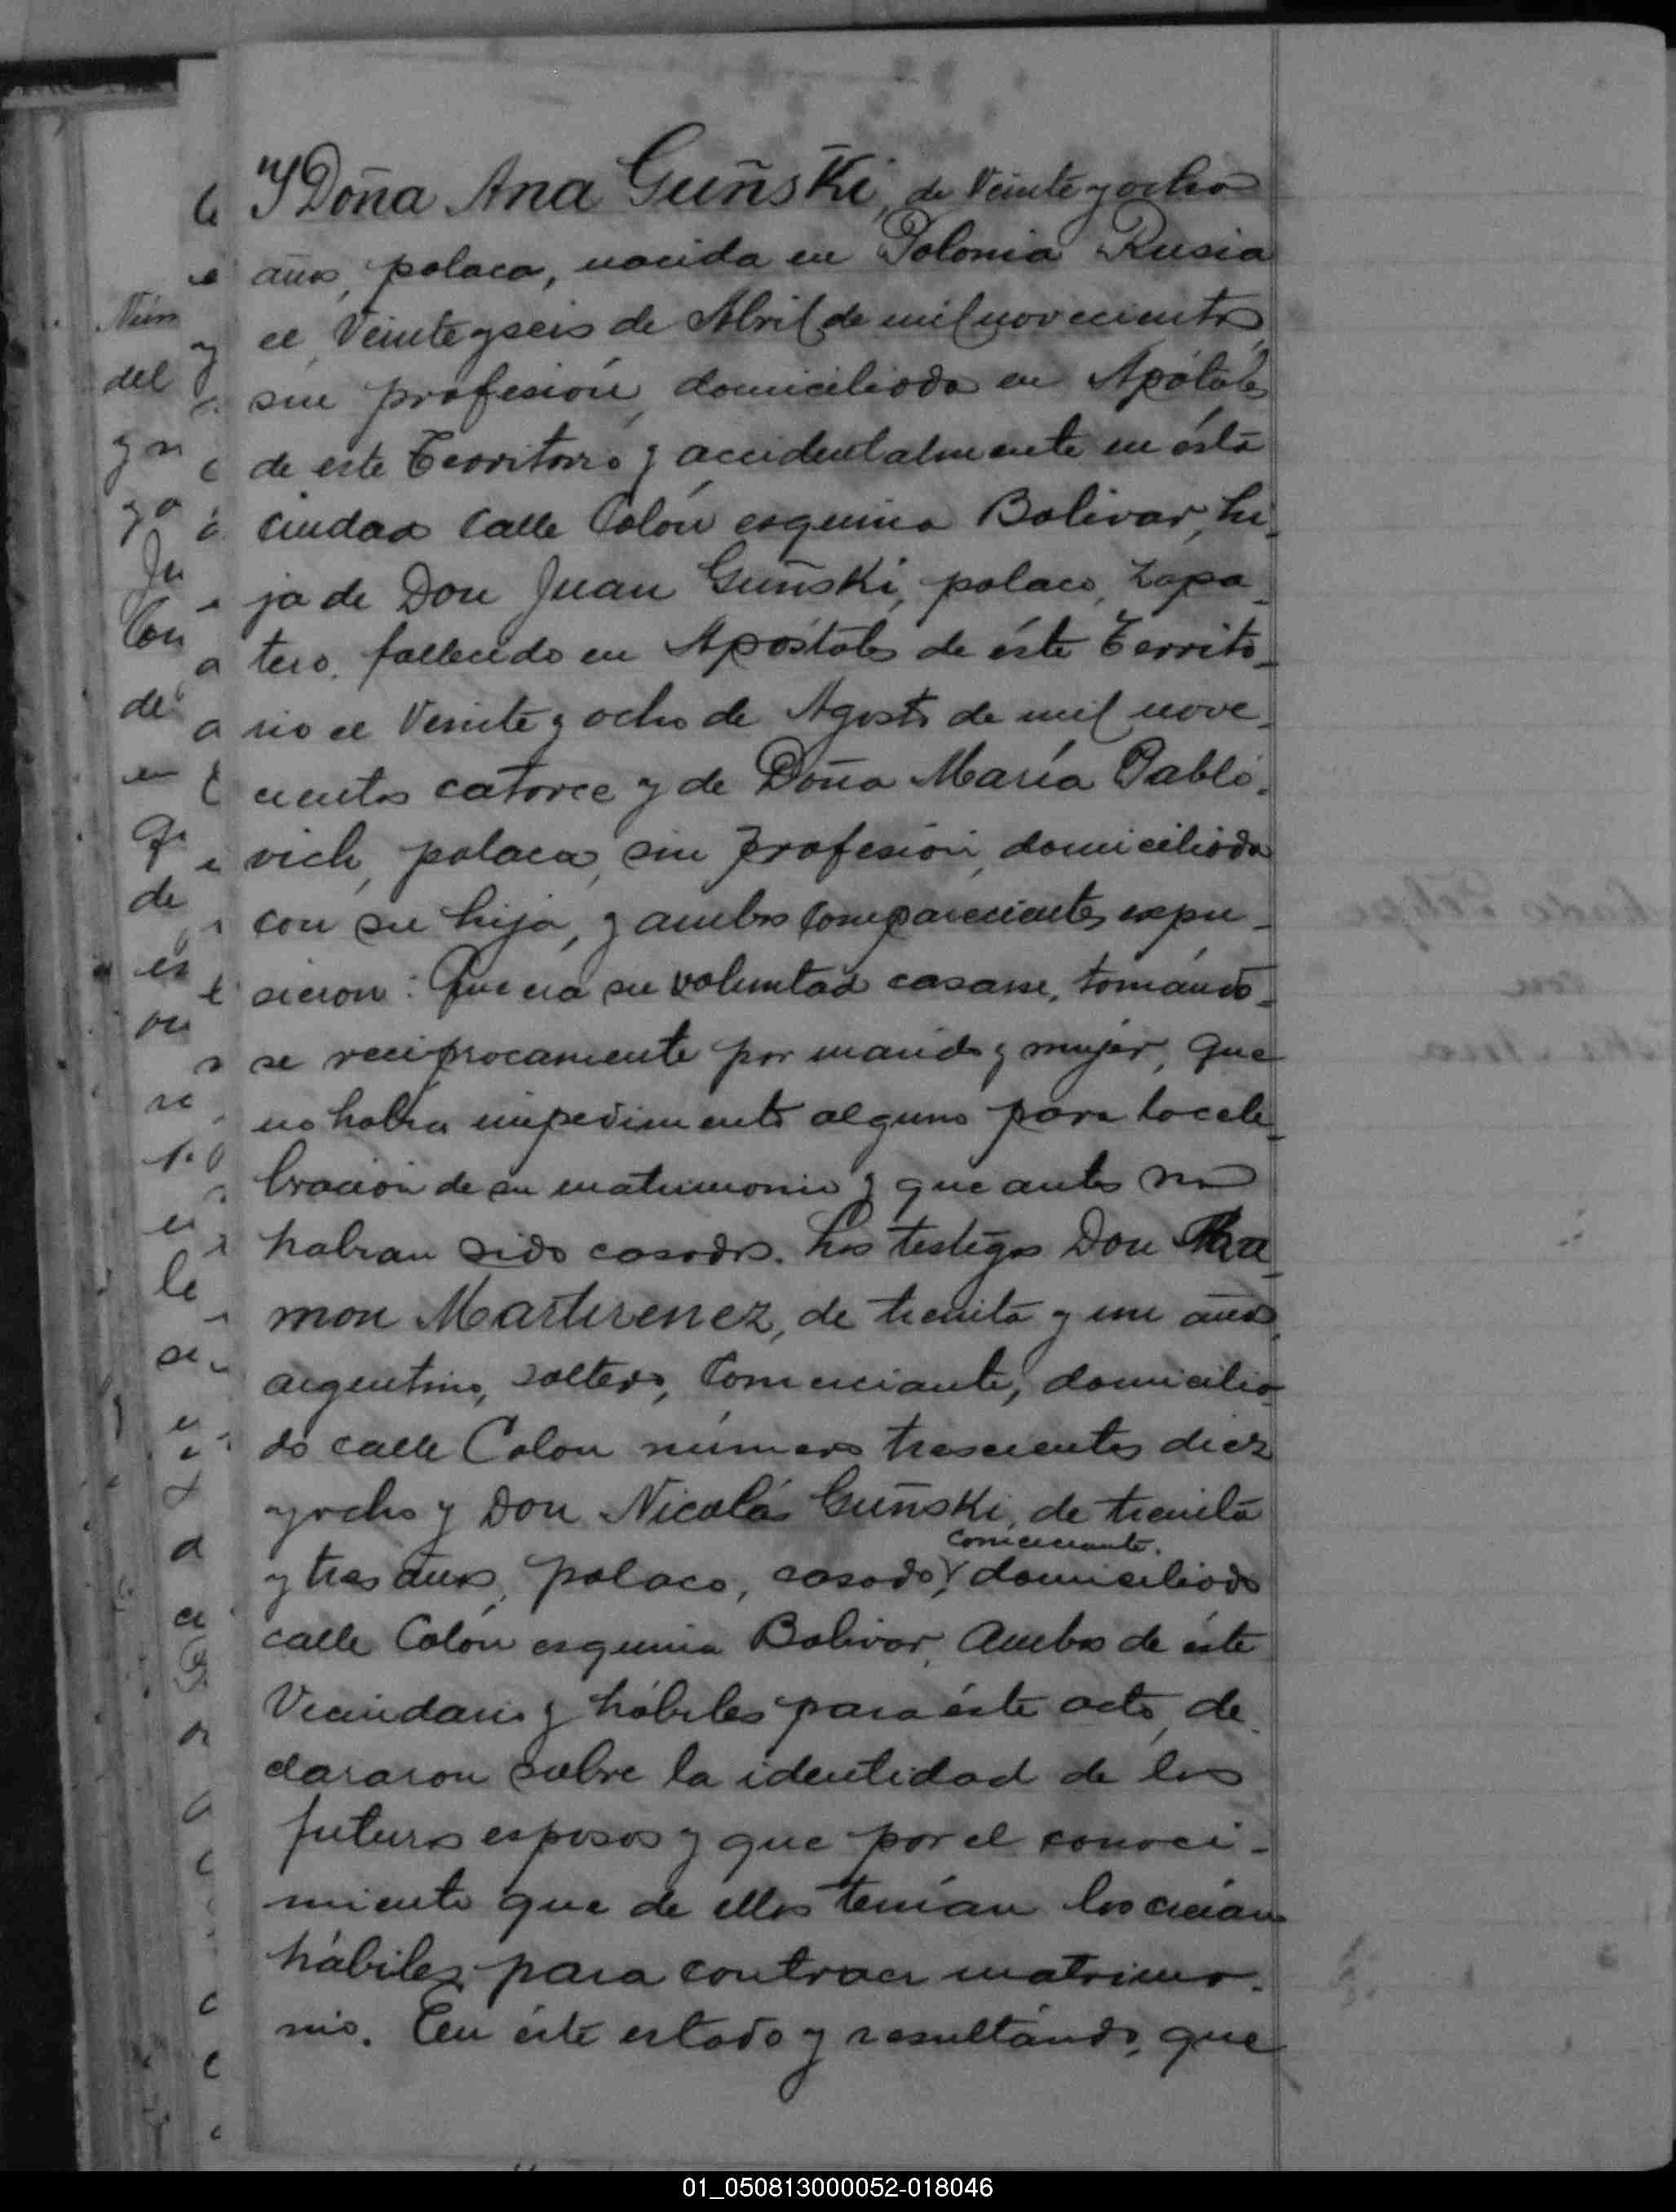 Y Doña Ana Guñski, de Veinte y ocho
años, polaca, nacida en Polonia Rusia
el Veinte y seis de Abril de mil novecientos,
sin profesión, domiciliada en Apóstoles
de este Territorio y accidentalmente en ésta
ciudad calle Colón esquina Bolivar, hi-
ja de Don Juan Guñski, polaco, zapa-
tero, fallecido en Apóstoles de éste Territo-
rio el Veinte y ocho de Agosto de mil nove-
cientos catorce y de Doña María Pablo-
vich, polaca, sin profesión, domiciliada
con su hija, y ambos comparecientes expu-
sieron: Que era su voluntad casarse, tomándo-
se reciprocamente por marido y mujer, que
no habia impedimento alguno para la cele-
bración de su matrimonio y que antes no
habian sido casados. Los testigos Don Ra-
mon Martirenez, de treinta y un años,
argentino, soltero, comerciante, domicilia-
do calle Colon número trescientos diez
y ocho y Don Nicolás Guñski, de treinta
comerciante.
y tres años, polaco, casado, domiciliado
calle Colón esquina Bolivar, Ambos de éste
Vecindario y hábiles para éste acto, de-
clararon sobre la identidad de los
futuros esposos y que por el conoci-
miento que de ellos tenían los creian
hábiles para contraer matrimo-
nio. En éste estado y resultándo, que
Núm
del
Ju
Con
de
en
de
es
le
01_050813000052-018046